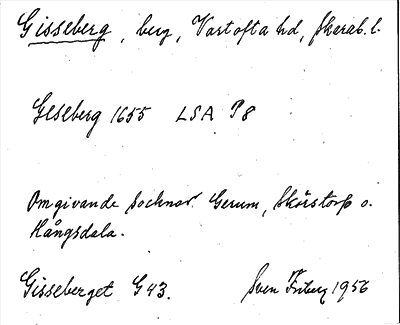 Gisseberg, berg, Vartofta hd, Skarab. l.
Geseberg 1655 LSA P8
Omgivande socknar. Gerum, Skörstorp o.
Hångsdala.
Gisseberget G43. Sven Friberg 1956